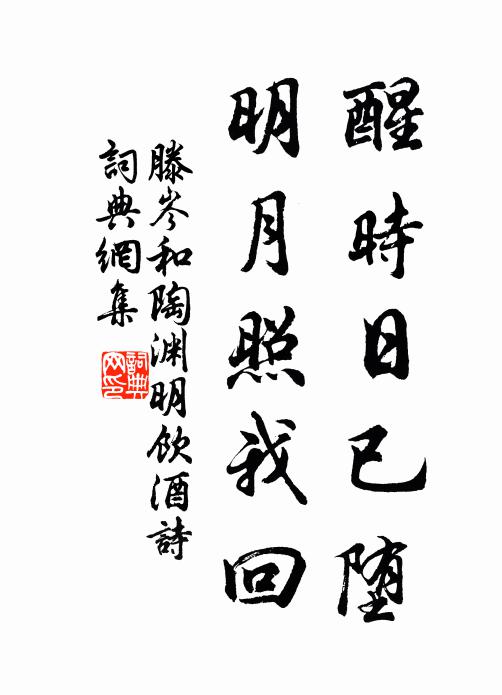 醒時日已堕
明月照我回
滕岑和陶渊明飲酒詩
詞典網集
詞典网印